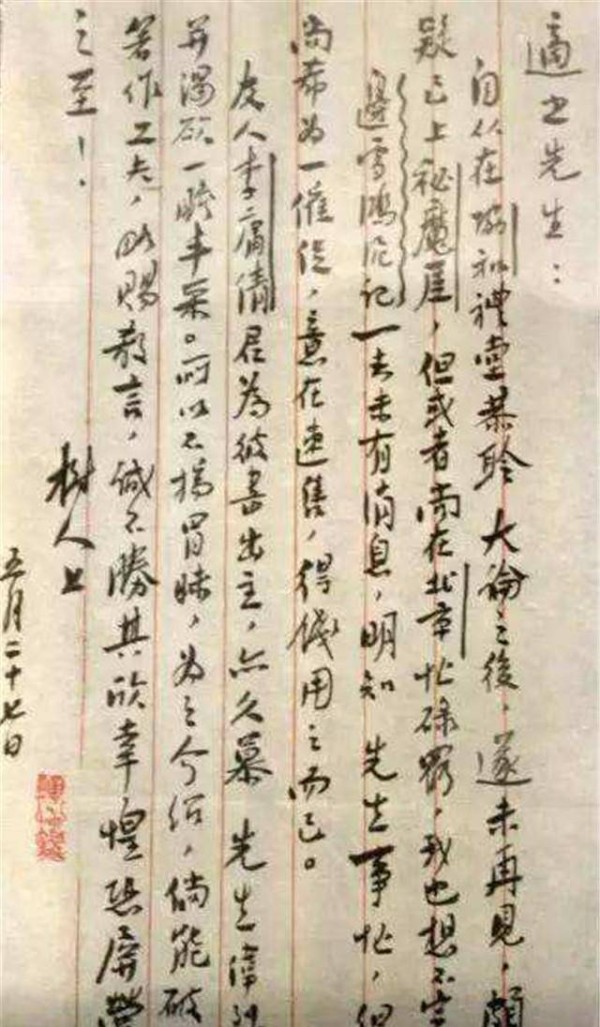 適之先生：
自从在協和禮堂恭聆大論之後，遂未再見，頗
疑已上祕魔崖，但或者尚在北京忙碌罢，我也想不定
邊雪鴻泥记一去未有消息，明知 先生事忙，但
尚希为一催促，意在速售，得钱用之而已。
友人李庸倩君為彼書出主，亦久慕 先生偉烈
并渴欲一瞻丰采。所以不揣冒昧，为之介绍，倘能破
著作工夫，略赐教言，诚不勝其欣幸惶恐屏營
之至！
樹人上
五月二十七日